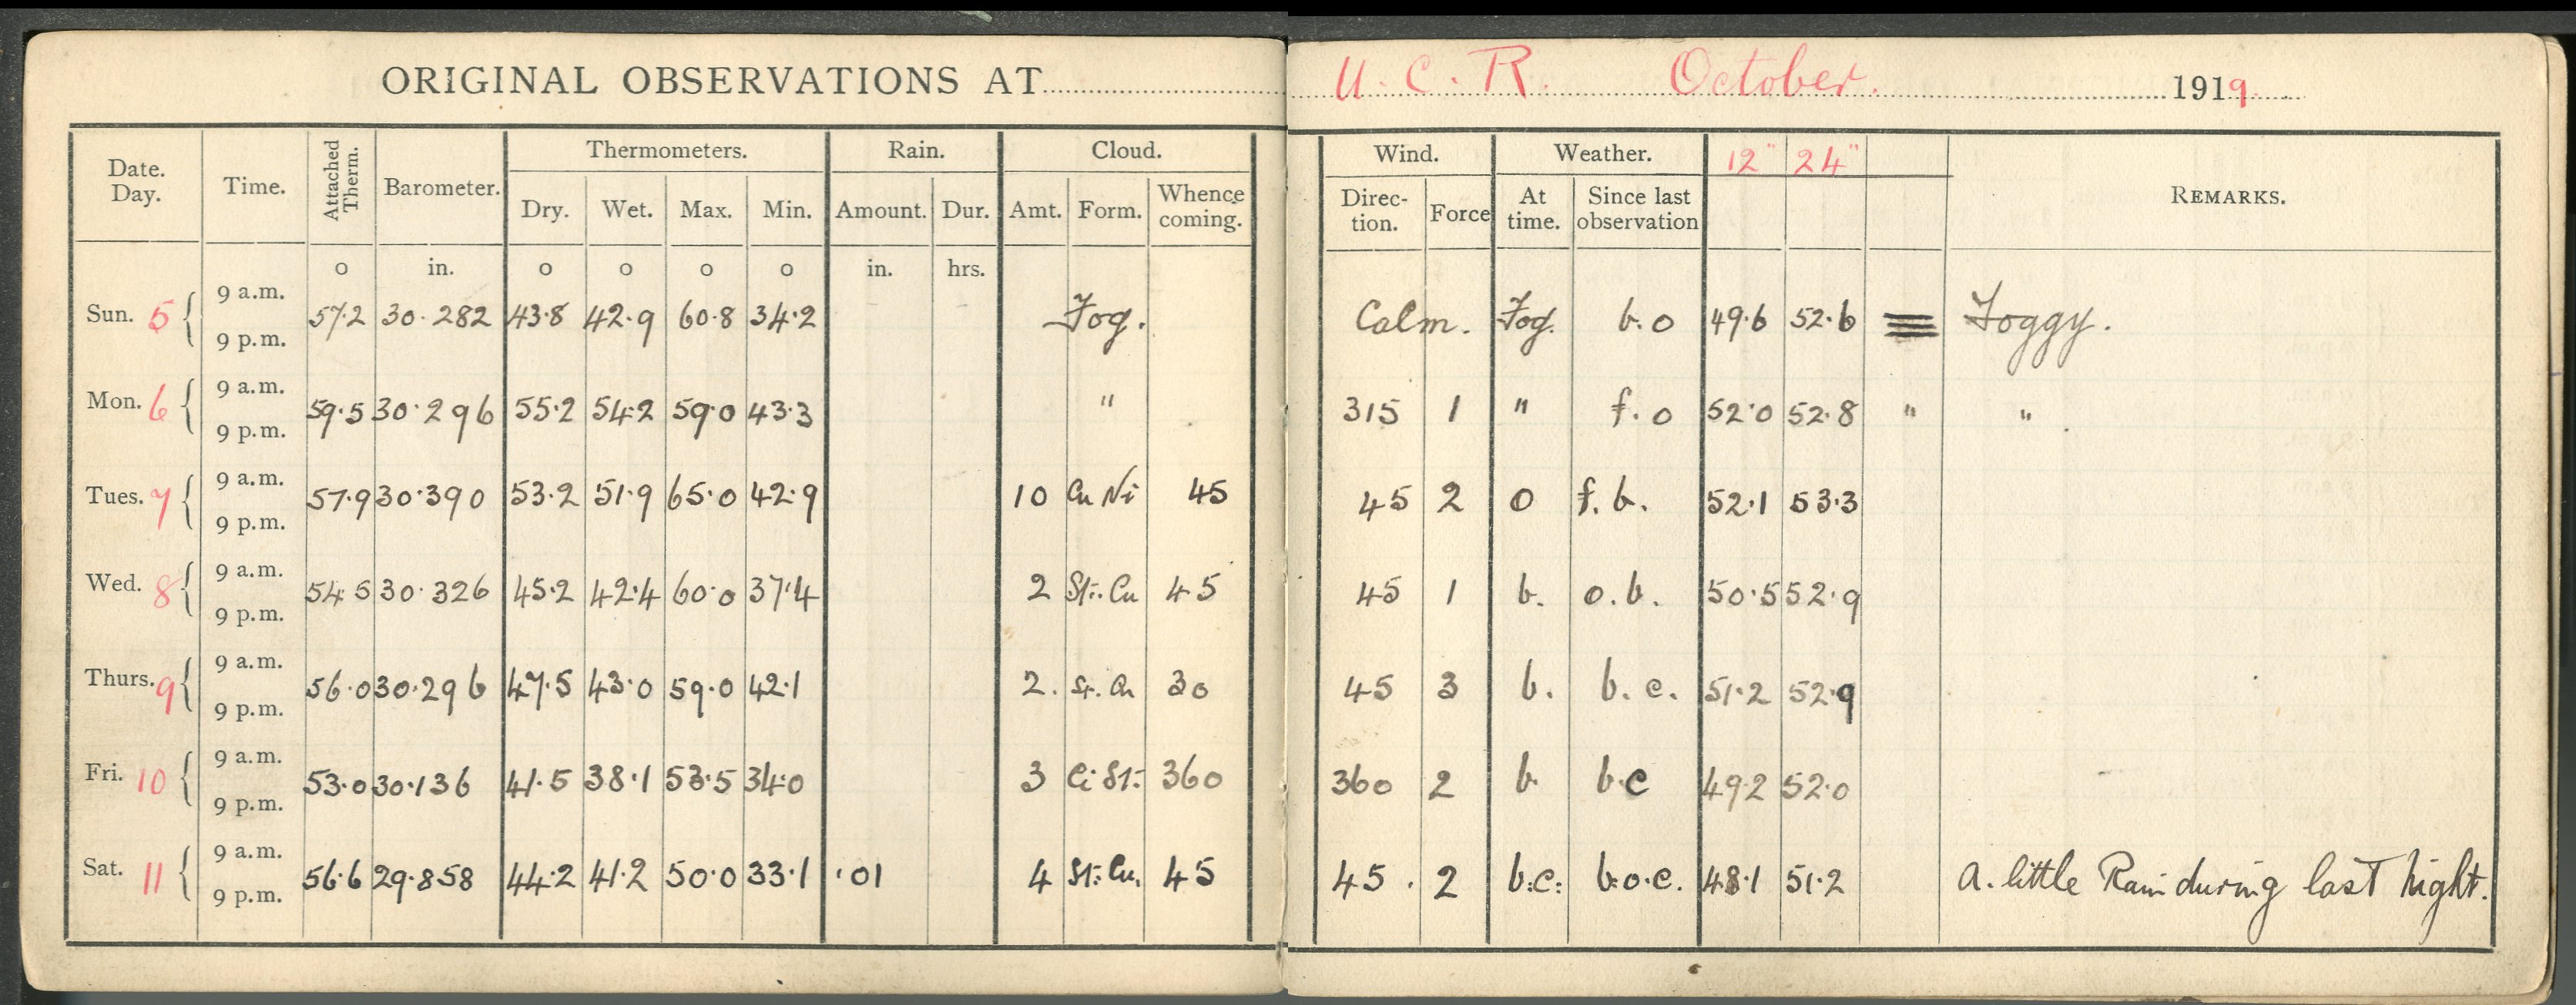 ORIGINAL OBSERVATIONS AT U. C. R. October. 1919
Date. Day. Time. Attached Therm. Barometer. Thermometers. Rain. Cloud. Wind. Weather. 12" 24" REMARKS.
Dry. Wet. Max. Min. Amount. Dur. Amt. Form. Whence coming. Direc- tion. Force At time. Since last observation
o in. o o o o in. hrs.
Sun. 5 { 9 a.m. 9 p.m. 57.2 30.282 43.8 42.9 60.8 34.2 Fog. Calm. Fog. b.o 49.6 52.6 ≡ Foggy.
Mon. 6 { 9 a.m. 9 p.m. 59.5 30.296 55.2 54.2 59.0 43.3 " 315 1 " f.o 52.0 52.8 " "
Tues. 7 { 9 a.m. 9 p.m. 57.9 30.390 53.2 51.9 65.0 42.9 10 Cu Ni 45 45 2 o f.b. 52.1 53.3
Wed. 8 { 9 a.m. 9 p.m. 54.5 30.326 45.2 42.4 60.0 37.4 2 St.Cu 45 45 1 b. o.b. 50.5 52.9
Thurs. 9 { 9 a.m. 9 p.m. 56.0 30.296 47.5 43.0 59.0 42.1 2. St.Cu 30 45 3 b. b.c. 51.2 52.9
Fri. 10 { 9 a.m. 9 p.m. 53.0 30.136 41.5 38.1 53.5 34.0 3 Ci St: 360 360 2 b. b.c 49.2 52.0
Sat. 11 { 9 a.m. 9 p.m. 56.6 29.858 44.2 41.2 50.0 33.1 .01 4 St:Cu. 45 45. 2 b:c: b.o.c. 48.1 51.2 A. little Rain during last night.